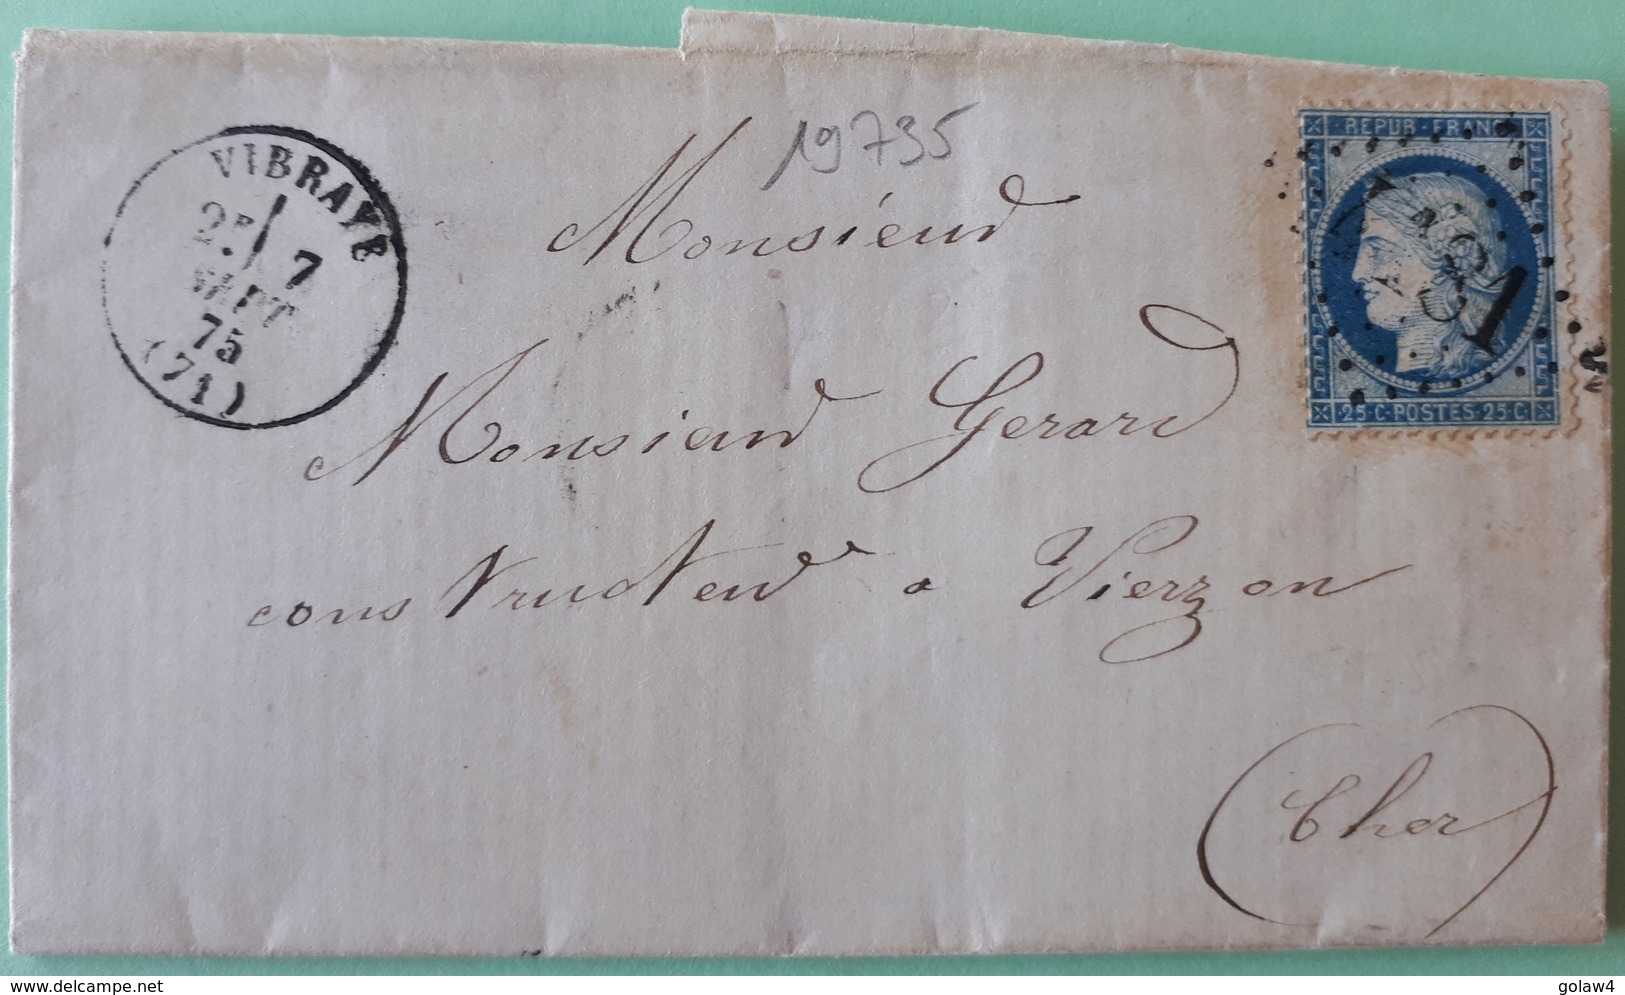 19735
VIBRAYE
2E / 7
SEPT
75
(71)
REPUB. FRANC.
4181
25·C·POSTES·25·C
Monsieur
Monsieur Gerard
constructeur a Vierzon
(Cher)
www.delcampe.net
golaw4